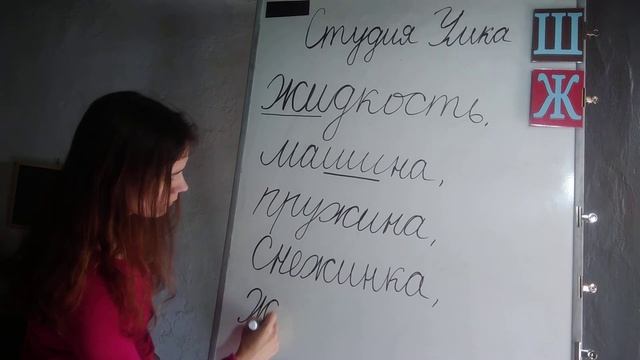 Студия Уника
Ш
Ж
Жидкость,
машина,
пружина,
Снежинка,
Ж